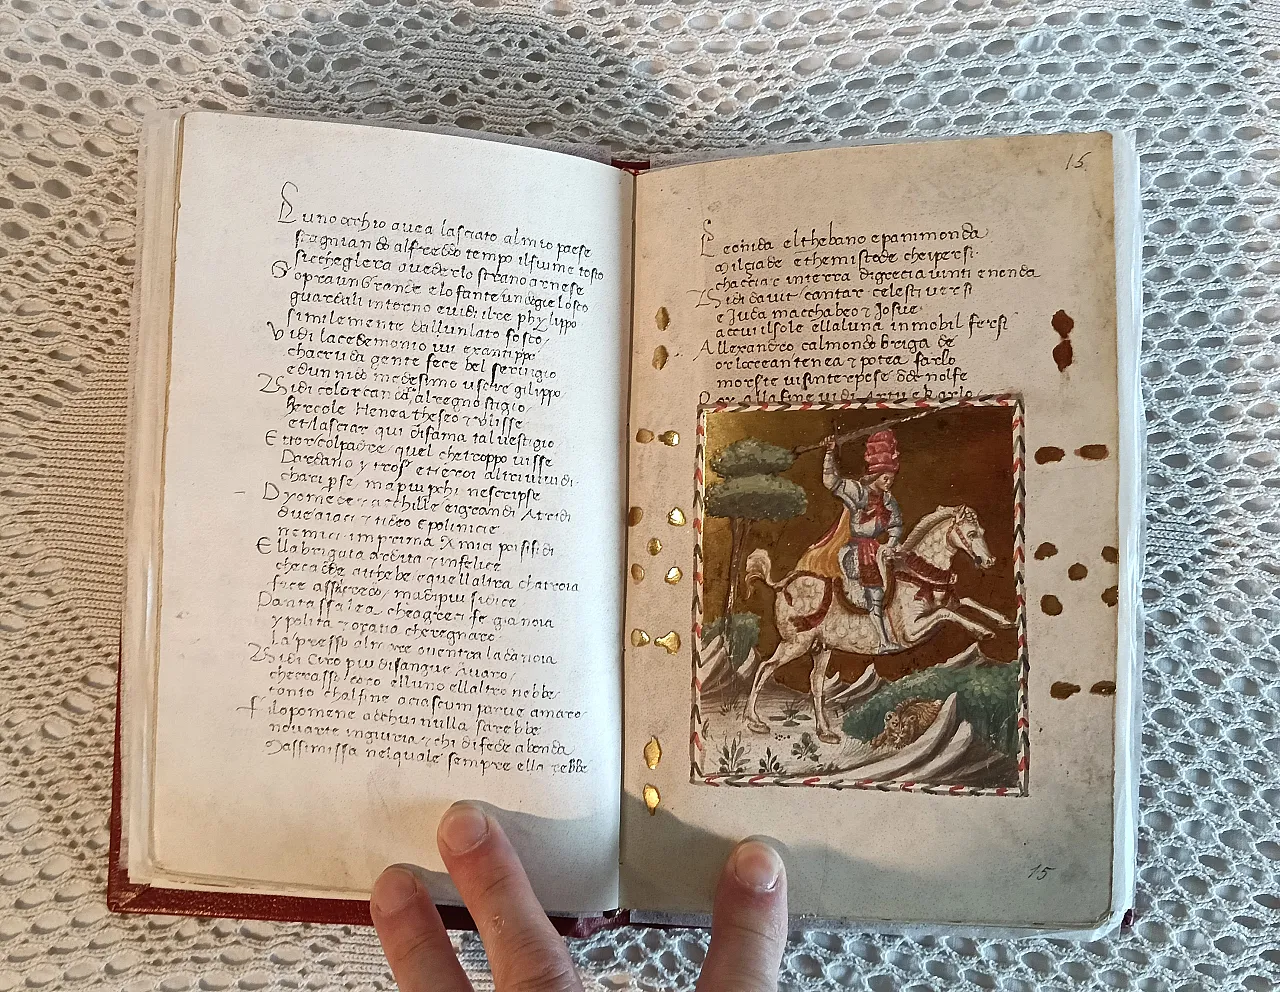 L uno ochio avea lasciato al mio paese
stagniando al freddo tempo il fiume tosto
siccheglera avederlo strano arnese
S opra un grande elofante un doge losco
guardali intorno e vidi il re phylippo
similemente dallun lato fosco
V idi lacedemonio iui exantippo
chacruda gente fece bel seruigio
edun nido medesimo uscire gilippo
V idi color canda al regno stigio
hercole Henea theseo & Vlisse
et lasciar qui di fama tal uestigio
E ttor colpadre quel che troppo uisse
Dardano & tros
chari pse ma piu phi ne scripse
D yomede & acchille e i grandi Atridi
due aiaci & tideo e polinicie
nemici in prima Amici poi si fidi
E lla brigata ardita & infelice
che cadde a thebe e quell altra cha troia
fece ma di piu si dice
P antassalea che a greci fe gia noia
y polita & oratia che regnaro
la presso al mare ouentra la danoia
V idi Ciro piu di sangue Auaro
che crasso doro e lluno e llaltro nebbe
tanto chalfine a ciascun parue amaro
F ilopomene a cchui nulla sarebbe
nova arte in guerra & chi di fede abonda
Massimissa nel quale sempre ella rebbe
15
L eonida el thebano epaminonda
milciade e themistode che i persi
chacciar in terra di grecia uinti e nonda
V idi dauit cantar celesti uersi
e Juda macchabeo & Josue
a ccui il sole e lla luna in mobil fersi
A llexandro cal mondo briga de
or loceean tenea & potea farlo
morste uisinterpose donde nolfe
P oy alla fine uidi Artu e Karlo
15